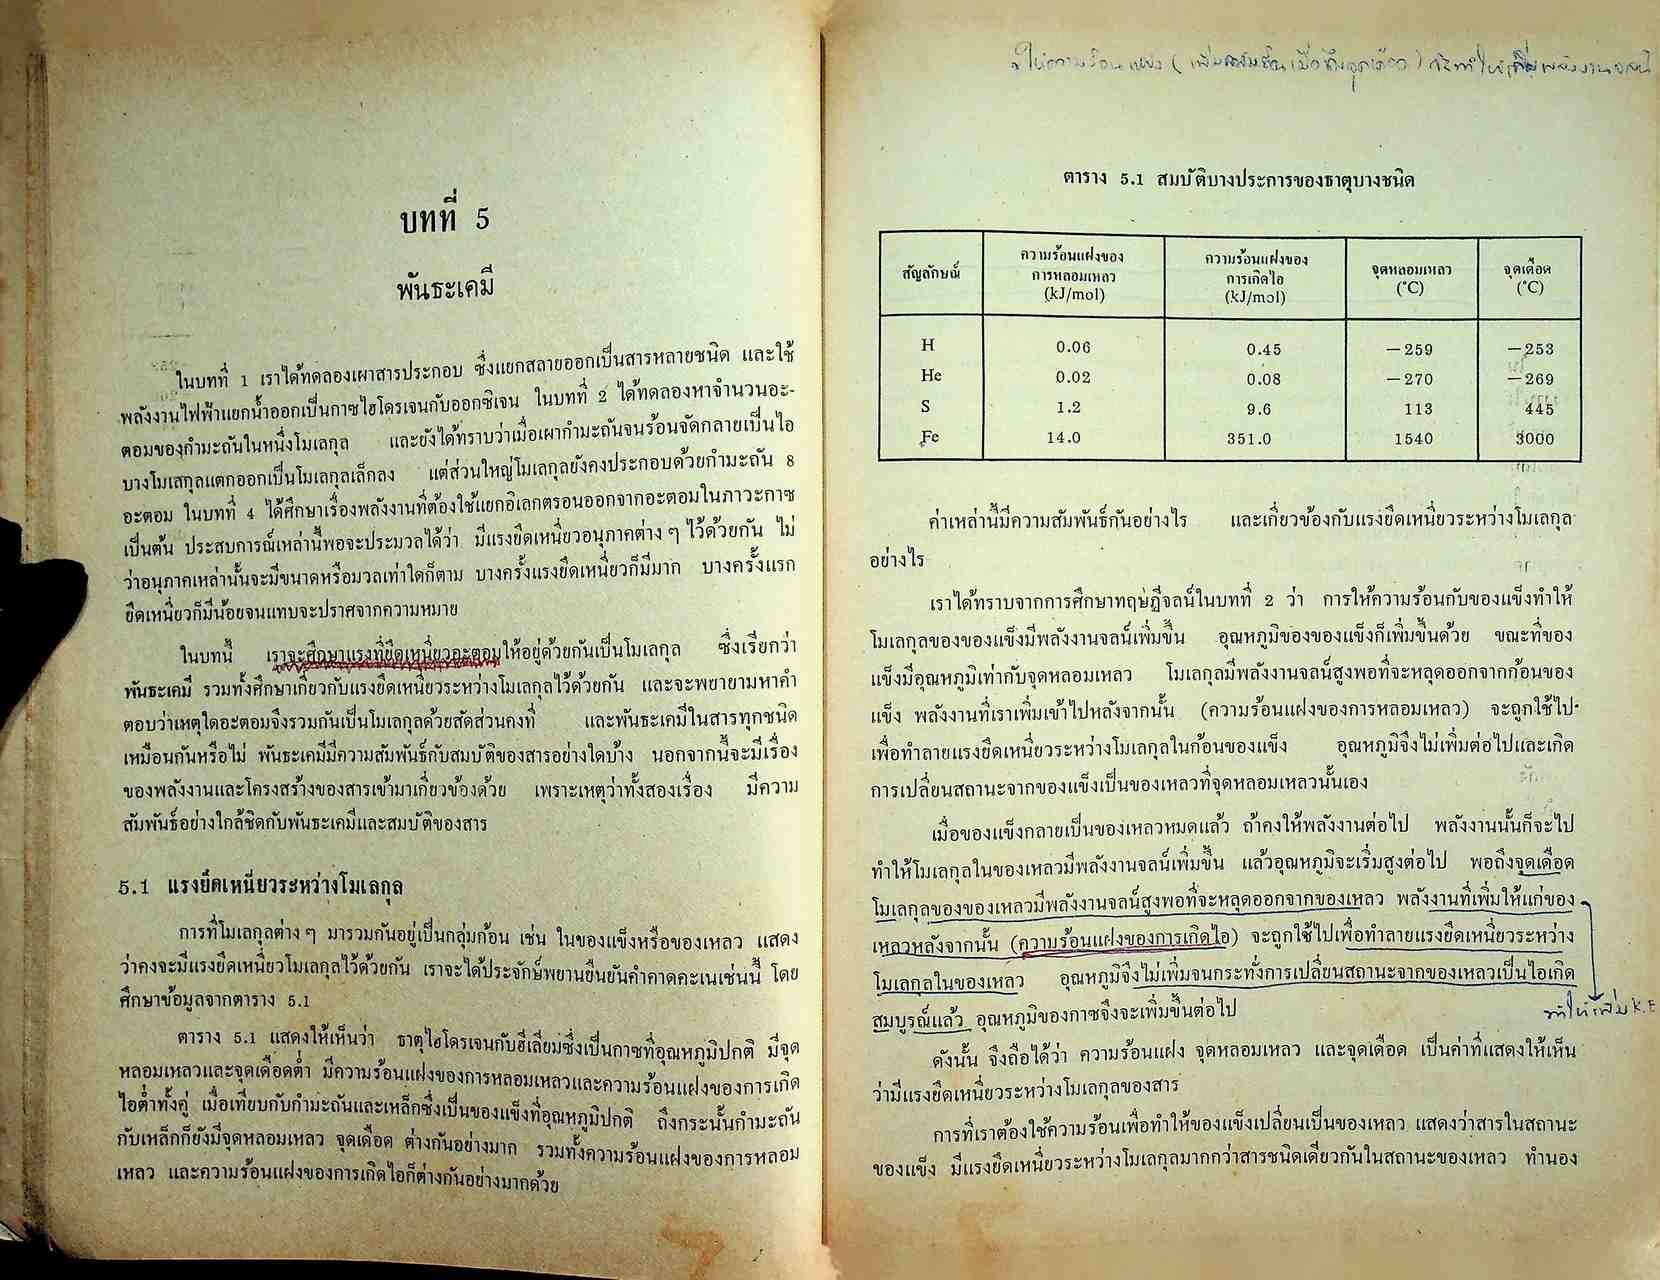 บทที่ 5
พันธะเคมี
ในบทที่ 1 เราได้ทดลองเผาสารประกอบ ซึ่งแยกสลายออกเป็นสารหลายชนิด และใช้
พลังงานไฟฟ้าแยกน้ำออกเป็นกาซไฮโดรเจนกับออกซิเจน ในบทที่ 2 ได้ทดลองหาจำนวนอะ-
ตอมของกำมะถันในหนึ่งโมเลกุล และยังได้ทราบว่าเมื่อเผากำมะถันจนร้อนจัดกลายเป็นไอ
บางโมเลกุลแตกออกเป็นโมเลกุลเล็กลง แต่ส่วนใหญ่โมเลกุลยังคงประกอบด้วยกำมะถัน 8
อะตอม ในบทที่ 4 ได้ศึกษาเรื่องพลังงานที่ต้องใช้แยกอิเลกตรอนออกจากอะตอมในภาวะกาซ
เป็นต้น ประสบการณ์เหล่านี้พอจะประมวลได้ว่า มีแรงยึดเหนี่ยวอนุภาคต่าง ๆ ไว้ด้วยกัน ไม่
ว่าอนุภาคเหล่านั้นจะมีขนาดหรือมวลเท่าใดก็ตาม บางครั้งแรงยึดเหนี่ยวก็มีมาก บางครั้งแรก
ยึดเหนี่ยวก็มีน้อยจนแทบจะปราศจากความหมาย
ในบทนี้ เราจะศึกษาแรงที่ยึดเหนี่ยวอะตอมให้อยู่ด้วยกันเป็นโมเลกุล ซึ่งเรียกว่า
พันธะเคมี รวมทั้งศึกษาเกี่ยวกับแรงยึดเหนี่ยวระหว่างโมเลกุลไว้ด้วยกัน และจะพยายามหาคำ
ตอบว่าเหตุใดอะตอมจึงรวมกันเป็นโมเลกุลด้วยสัดส่วนคงที่ และพันธะเคมีในสารทุกชนิด
เหมือนกันหรือไม่ พันธะเคมีมีความสัมพันธ์กับสมบัติของสารอย่างใดบ้าง นอกจากนี้จะมีเรื่อง
ของพลังงานและโครงสร้างของสารเข้ามาเกี่ยวข้องด้วย เพราะเหตุว่าทั้งสองเรื่อง มีความ
สัมพันธ์อย่างใกล้ชิดกับพันธะเคมีและสมบัติของสาร
5.1 แรงยึดเหนี่ยวระหว่างโมเลกุล
การที่โมเลกุลต่าง ๆ มารวมกันอยู่เป็นกลุ่มก้อน เช่น ในของแข็งหรือของเหลว แสดง
ว่าคงจะมีแรงยึดเหนี่ยวโมเลกุลไว้ด้วยกัน เราจะได้ประจักษ์พยานยืนยันคำคาดคะเนเช่นนี้ โดย
ศึกษาข้อมูลจากตาราง 5.1
ตาราง 5.1 แสดงให้เห็นว่า ธาตุไฮโดรเจนกับฮีเลียมซึ่งเป็นกาซที่อุณหภูมิปกติ มีจุด
หลอมเหลวและจุดเดือดต่ำ มีความร้อนแฝงของการหลอมเหลวและความร้อนแฝงของการเกิด
ไอต่ำทั้งคู่ เมื่อเทียบกับกำมะถันและเหล็กซึ่งเป็นของแข็งที่อุณหภูมิปกติ ถึงกระนั้นกำมะถัน
กับเหล็กก็ยังมีจุดหลอมเหลว จุดเดือด ต่างกันอย่างมาก รวมทั้งความร้อนแฝงของการหลอม
เหลว และความร้อนแฝงของการเกิดไอก็ต่างกันอย่างมากด้วย
ตาราง 5.1 สมบัติบางประการของธาตุบางชนิด
สัญลักษณ์ ความร้อนแฝงของการหลอมเหลว (kJ/mol) ความร้อนแฝงของการเกิดไอ (kJ/mol) จุดหลอมเหลว (°C) จุดเดือด (°C)
H 0.06 0.45 −259 −253
He 0.02 0.08 −270 −269
S 1.2 9.6 113 445
Fe 14.0 351.0 1540 3000
ค่าเหล่านี้มีความสัมพันธ์กันอย่างไร และเกี่ยวข้องกับแรงยึดเหนี่ยวระหว่างโมเลกุล
อย่างไร
เราได้ทราบจากการศึกษาทฤษฎีจลน์ในบทที่ 2 ว่า การให้ความร้อนกับของแข็งทำให้
โมเลกุลของของแข็งมีพลังงานจลน์เพิ่มขึ้น อุณหภูมิของของแข็งก็เพิ่มขึ้นด้วย ขณะที่ของ
แข็งมีอุณหภูมิเท่ากับจุดหลอมเหลว โมเลกุลมีพลังงานจลน์สูงพอที่จะหลุดออกจากก้อนของ
แข็ง พลังงานที่เราเพิ่มเข้าไปหลังจากนั้น (ความร้อนแฝงของการหลอมเหลว) จะถูกใช้ไป
เพื่อทำลายแรงยึดเหนี่ยวระหว่างโมเลกุลในก้อนของแข็ง อุณหภูมิจึงไม่เพิ่มต่อไปและเกิด
การเปลี่ยนสถานะจากของแข็งเป็นของเหลวที่จุดหลอมเหลวนั้นเอง
เมื่อของแข็งกลายเป็นของเหลวหมดแล้ว ถ้าคงให้พลังงานต่อไป พลังงานนั้นก็จะไป
ทำให้โมเลกุลในของเหลวมีพลังงานจลน์เพิ่มขึ้น แล้วอุณหภูมิจะเริ่มสูงต่อไป พอถึงจุดเดือด
โมเลกุลของของเหลวมีพลังงานจลน์สูงพอที่จะหลุดออกจากของเหลว พลังงานที่เพิ่มให้แก่ของ
เหลวหลังจากนั้น (ความร้อนแฝงของการเกิดไอ) จะถูกใช้ไปเพื่อทำลายแรงยึดเหนี่ยวระหว่าง
โมเลกุลในของเหลว อุณหภูมิจึงไม่เพิ่มจนกระทั่งการเปลี่ยนสถานะจากของเหลวเป็นไอเกิด
สมบูรณ์แล้ว อุณหภูมิของกาซจึงจะเพิ่มขึ้นต่อไป
ทำให้เพิ่ม K.E
ดังนั้น จึงถือได้ว่า ความร้อนแฝง จุดหลอมเหลว และจุดเดือด เป็นค่าที่แสดงให้เห็น
ว่ามีแรงยึดเหนี่ยวระหว่างโมเลกุลของสาร
การที่เราต้องใช้ความร้อนเพื่อทำให้ของแข็งเปลี่ยนเป็นของเหลว แสดงว่าสารในสถานะ
ของแข็ง มีแรงยึดเหนี่ยวระหว่างโมเลกุลมากกว่าสารชนิดเดียวกันในสถานะของเหลว ทำนอง